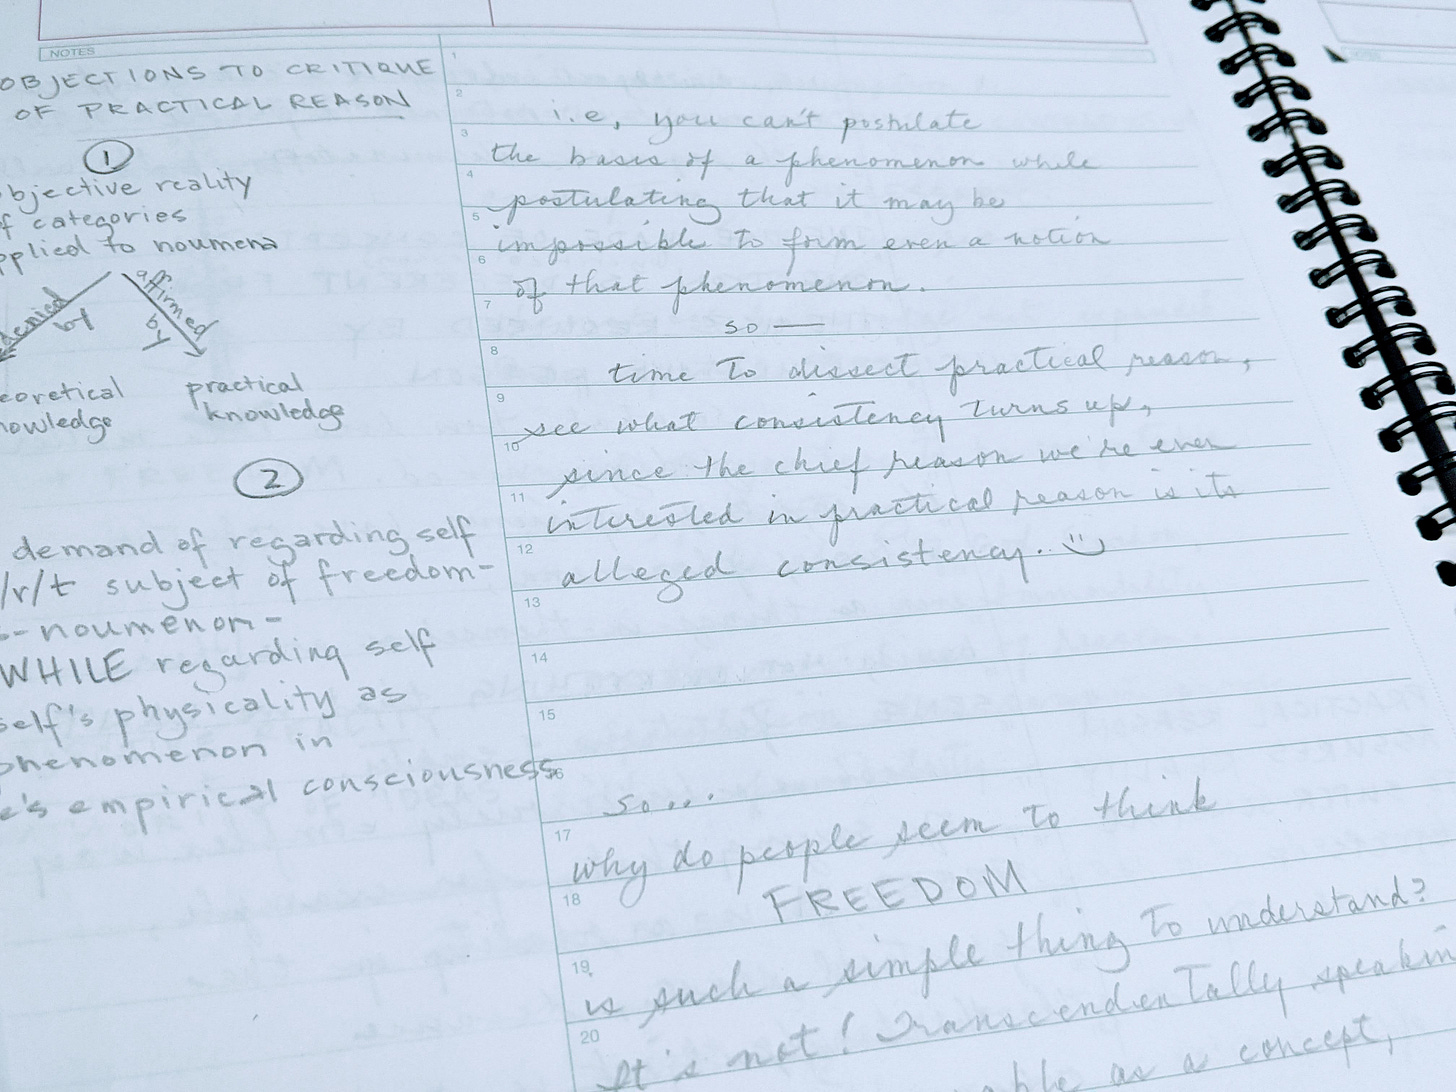 NOTES
OBJECTIONS TO CRITIQUE
OF PRACTICAL REASON
1
bjective reality
f categories
pplied to noumena
denied by
affirmed by
eoretical
nowledge
practical
knowledge
2
demand of regarding self
/r/t subject of freedom-
-noumenon-
WHILE regarding self
self's physicality as
phenomenon in
e's empirical consciousness
1
2
i.e, you can't postulate
3
the basis of a phenomenon while
4
postulating that it may be
5
impossible to form even a notion
6
of that phenomenon.
7
so —
8
time to dissect practical reason,
9
see what consistency turns up,
10
since the chief reason we're ever
11
interested in practical reason is its
12
alleged consistency.. :)
13
14
15
16
so....
17
why do people seem to think
18
FREEDOM
19
is such a simple thing to understand?
20
It's not! Transcendentally speakin
able as a concept,